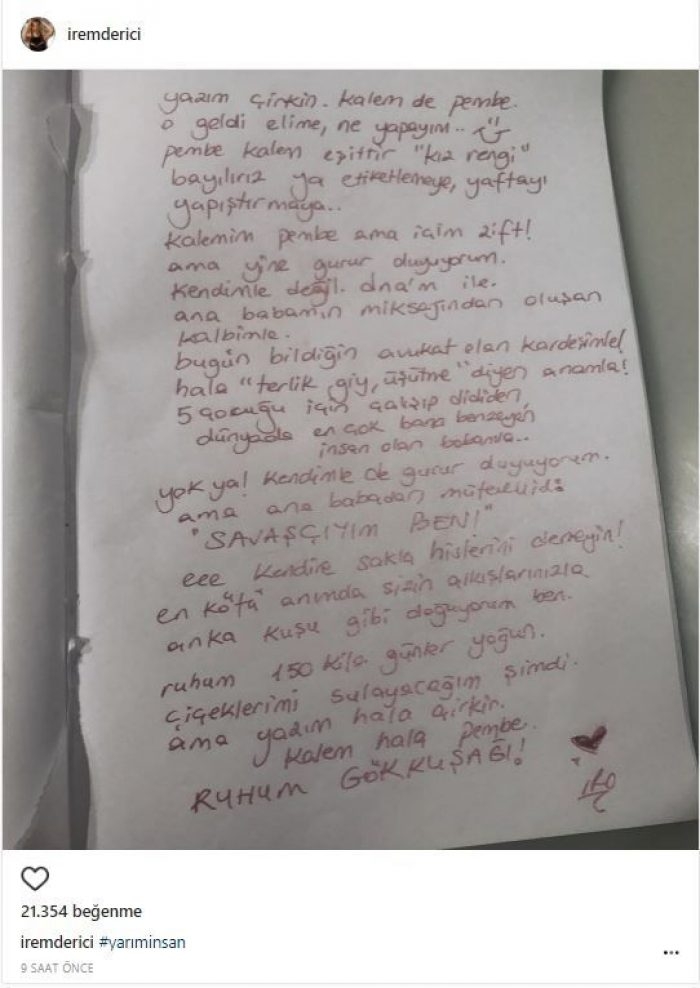 iremderici
yazım çirkin. kalem de pembe.
o geldi elime, ne yapayım..
pembe kalem eşittir "kız rengi"
bayılırız ya etiketlemeye, yaftayı
yapıştırmaya..
kalemim pembe ama içim zift!
ama yine gurur duyuyorum.
kendimle değil. dna'm ile.
ana babamın miksajından oluşan
kalbimle.
bugün bildiğin avukat olan kardeşimle!
hala "terlik giy, üşütme" diyen anamla!
5 çocuğu için çalışıp dididen,
dünyada en çok bana benzeyen
insan olan babamla..
yok ya! kendimle de gurur duyuyorum.
ama ana babadan mütevellid:
"SAVAŞÇIYIM BEN!"
eee kendine sakla hislerini demeyin!
en kötü anımda sizin alkışlarınızla
anka kuşu gibi doğuyorum ben.
ruhum 150 kilo günler yoğun.
çiçeklerimi sulayacağım şimdi.
ama yazım hala çirkin.
kalem hala pembe.
RUHUM GÖKKUŞAĞI!
21.354 beğenme
iremderici #yarıminsan
9 SAAT ÖNCE